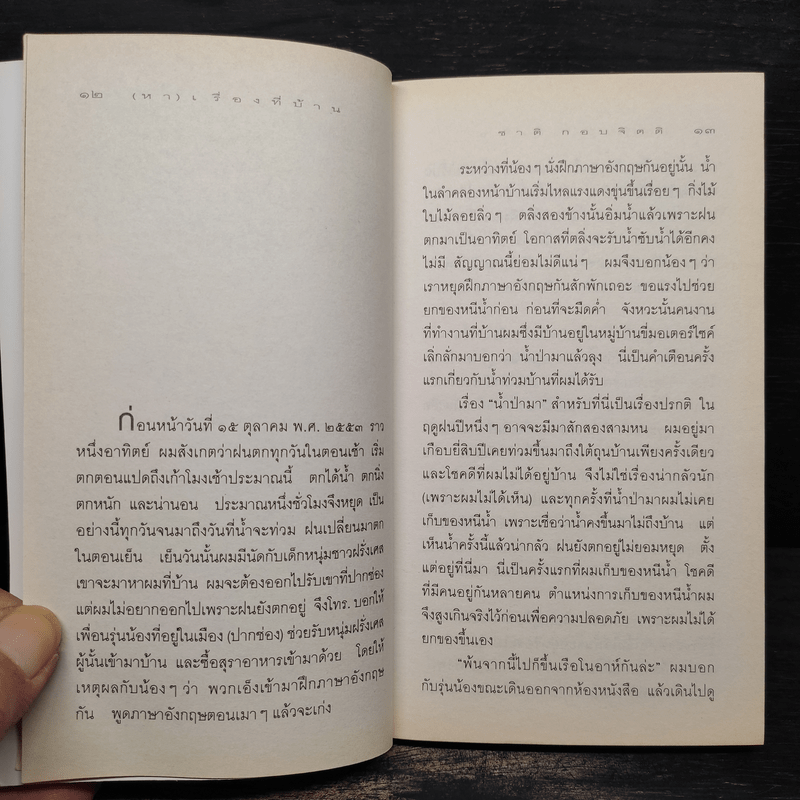 ๑๒ (หา) เรื่องที่บ้าน
ก่อนหน้าวันที่ ๑๕ ตุลาคม พ.ศ. ๒๕๕๓ ราว
หนึ่งอาทิตย์ ผมสังเกตว่าฝนตกทุกวันในตอนเช้า เริ่ม
ตกตอนแปดถึงเก้าโมงเช้าประมาณนี้ ตกได้น้ำ ตกนิ่ง
ตกหนัก และน่านอน ประมาณหนึ่งชั่วโมงจึงหยุด เป็น
อย่างนี้ทุกวันจนมาถึงวันที่น้ำจะท่วม ฝนเปลี่ยนมาตก
ในตอนเย็น เย็นวันนั้นผมมีนัดกับเด็กหนุ่มชาวฝรั่งเศส
เขาจะมาหาผมที่บ้าน ผมจะต้องออกไปรับเขาที่ปากช่อง
แต่ผมไม่อยากออกไปเพราะฝนยังตกอยู่ จึงโทร. บอกให้
เพื่อนรุ่นน้องที่อยู่ในเมือง (ปากช่อง) ช่วยรับหนุ่มฝรั่งเศส
ผู้นั้นเข้ามาบ้าน และซื้อสุราอาหารเข้ามาด้วย โดยให้
เหตุผลกับน้องๆ ว่า พวกเอ็งเข้ามาฝึกภาษาอังกฤษ
กัน พูดภาษาอังกฤษตอนเมาๆ แล้วจะเก่ง
ชาติ กอบจิตติ ๑๓
ระหว่างที่น้องๆ นั่งฝึกภาษาอังกฤษกันอยู่นั้น น้ำ
ในลำคลองหน้าบ้านเริ่มไหลแรงแดงขุ่นขึ้นเรื่อยๆ กิ่งไม้
ใบไม้ลอยลิ่วๆ ตลิ่งสองข้างนั้นอิ่มน้ำแล้วเพราะฝน
ตกมาเป็นอาทิตย์ โอกาสที่ตลิ่งจะรับน้ำซับน้ำได้อีกคง
ไม่มี สัญญาณนี้ย่อมไม่ดีแน่ๆ ผมจึงบอกน้องๆ ว่า
เราหยุดฝึกภาษาอังกฤษกันสักพักเถอะ ขอแรงไปช่วย
ยกของหนีน้ำก่อน ก่อนที่จะมืดค่ำ จังหวะนั้นคนงาน
ที่ทำงานที่บ้านผมซึ่งมีบ้านอยู่ในหมู่บ้านขี่มอเตอร์ไซค์
เลิ่กลั่กมาบอกว่า น้ำป่ามาแล้วลุง นี่เป็นคำเตือนครั้ง
แรกเกี่ยวกับน้ำท่วมบ้านที่ผมได้รับ
เรื่อง “น้ำป่ามา” สำหรับที่นี่เป็นเรื่องปรกติ ใน
ฤดูฝนปีหนึ่งๆ อาจจะมีมาสักสองสามหน ผมอยู่มา
เกือบยี่สิบปีเคยท่วมขึ้นมาถึงใต้ถุนบ้านเพียงครั้งเดียว
และโชคดีที่ผมไม่ได้อยู่บ้าน จึงไม่ใช่เรื่องน่ากลัวนัก
(เพราะผมไม่ได้เห็น) และทุกครั้งที่น้ำป่ามาผมไม่เคย
เก็บของหนีน้ำ เพราะเชื่อว่าน้ำคงขึ้นมาไม่ถึงบ้าน แต่
เห็นน้ำครั้งนี้แล้วน่ากลัว ฝนยังตกอยู่ไม่ยอมหยุด ตั้ง
แต่อยู่ที่นี่มา นี่เป็นครั้งแรกที่ผมเก็บของหนีน้ำ โชคดี
ที่มีคนอยู่กันหลายคน ตำแหน่งการเก็บของหนีน้ำผม
จึงสูงเกินจริงไว้ก่อนเพื่อความปลอดภัย เพราะผมไม่ได้
ยกของขึ้นเอง
“พ้นจากนี้ไปก็ขึ้นเรือโนอาห์กันล่ะ” ผมบอก
กับรุ่นน้องขณะเดินออกจากห้องหนังสือ แล้วเดินไปดู